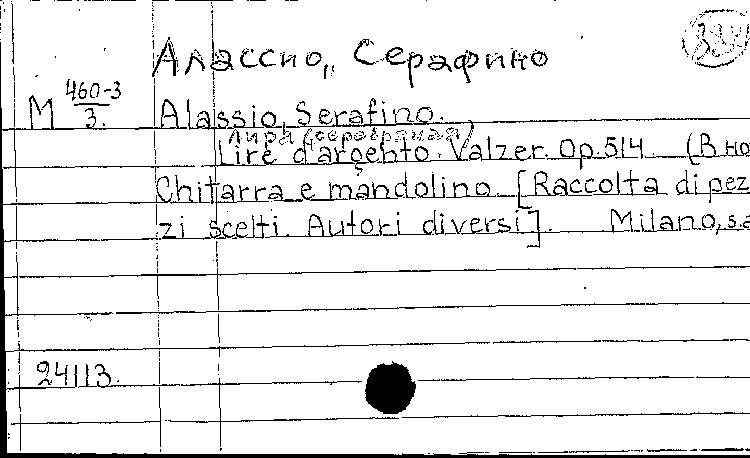 334
Алассио, Серафино
М 460-3/3. Alassio, Serafino.
Лира (серебряная)
Lire d'argento. Valzer. Op.514. (В но
Chitarra e mandolino. [Raccolta di pez
zi scelti. Autori diversi]. Milano, s.a
24113.